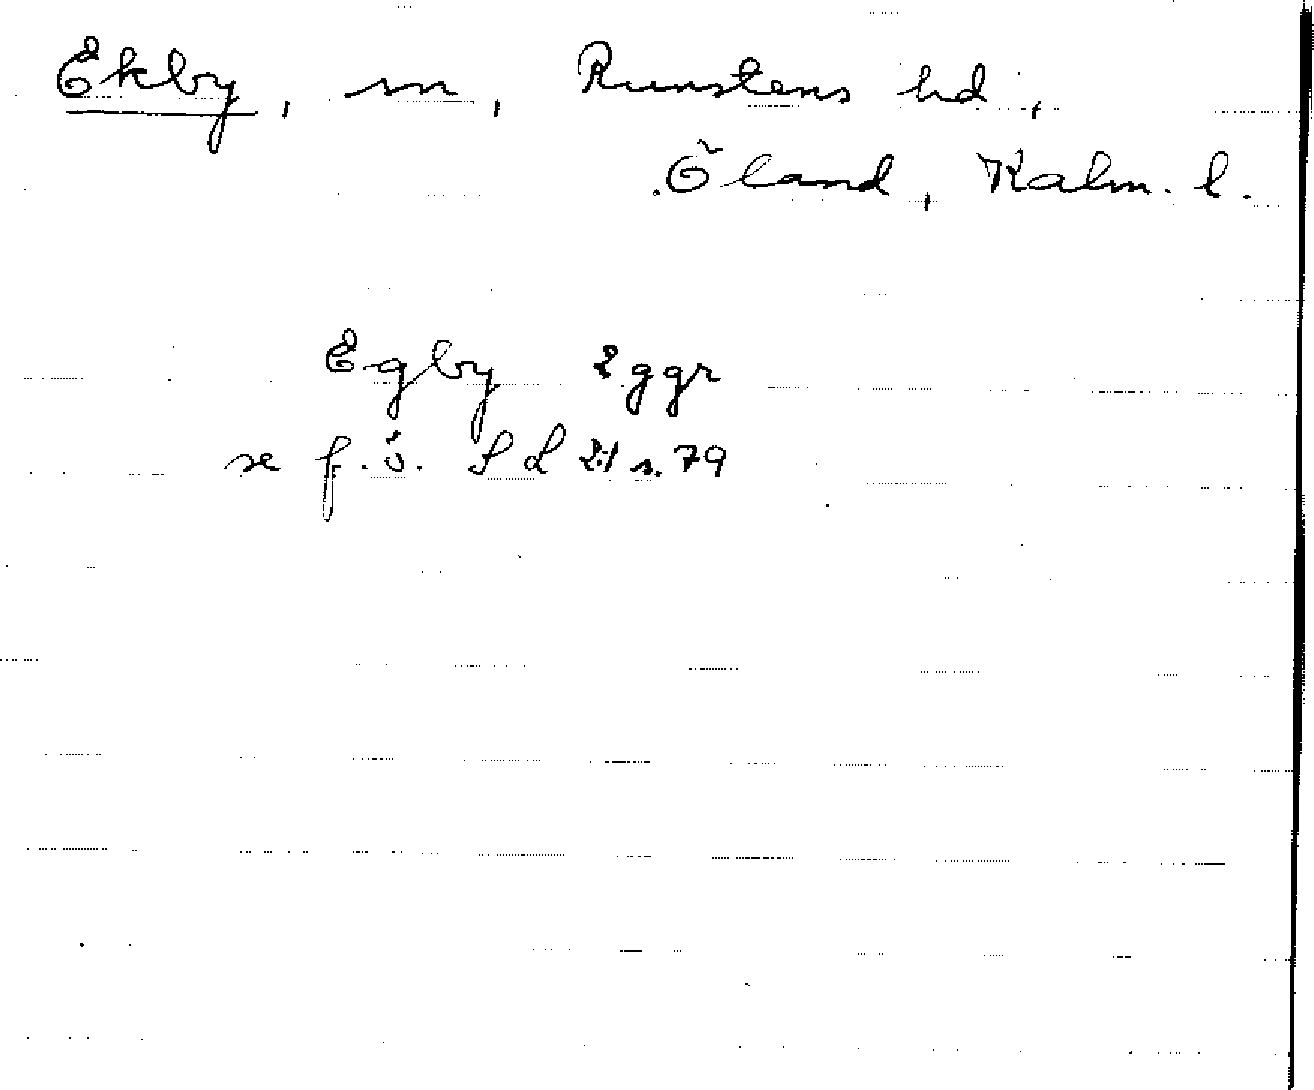 Ekby, sn, Runstens hd,
Öland, Kalm. l.
Egby 2 ggr
se f.ö. SL 2:1 s. 79